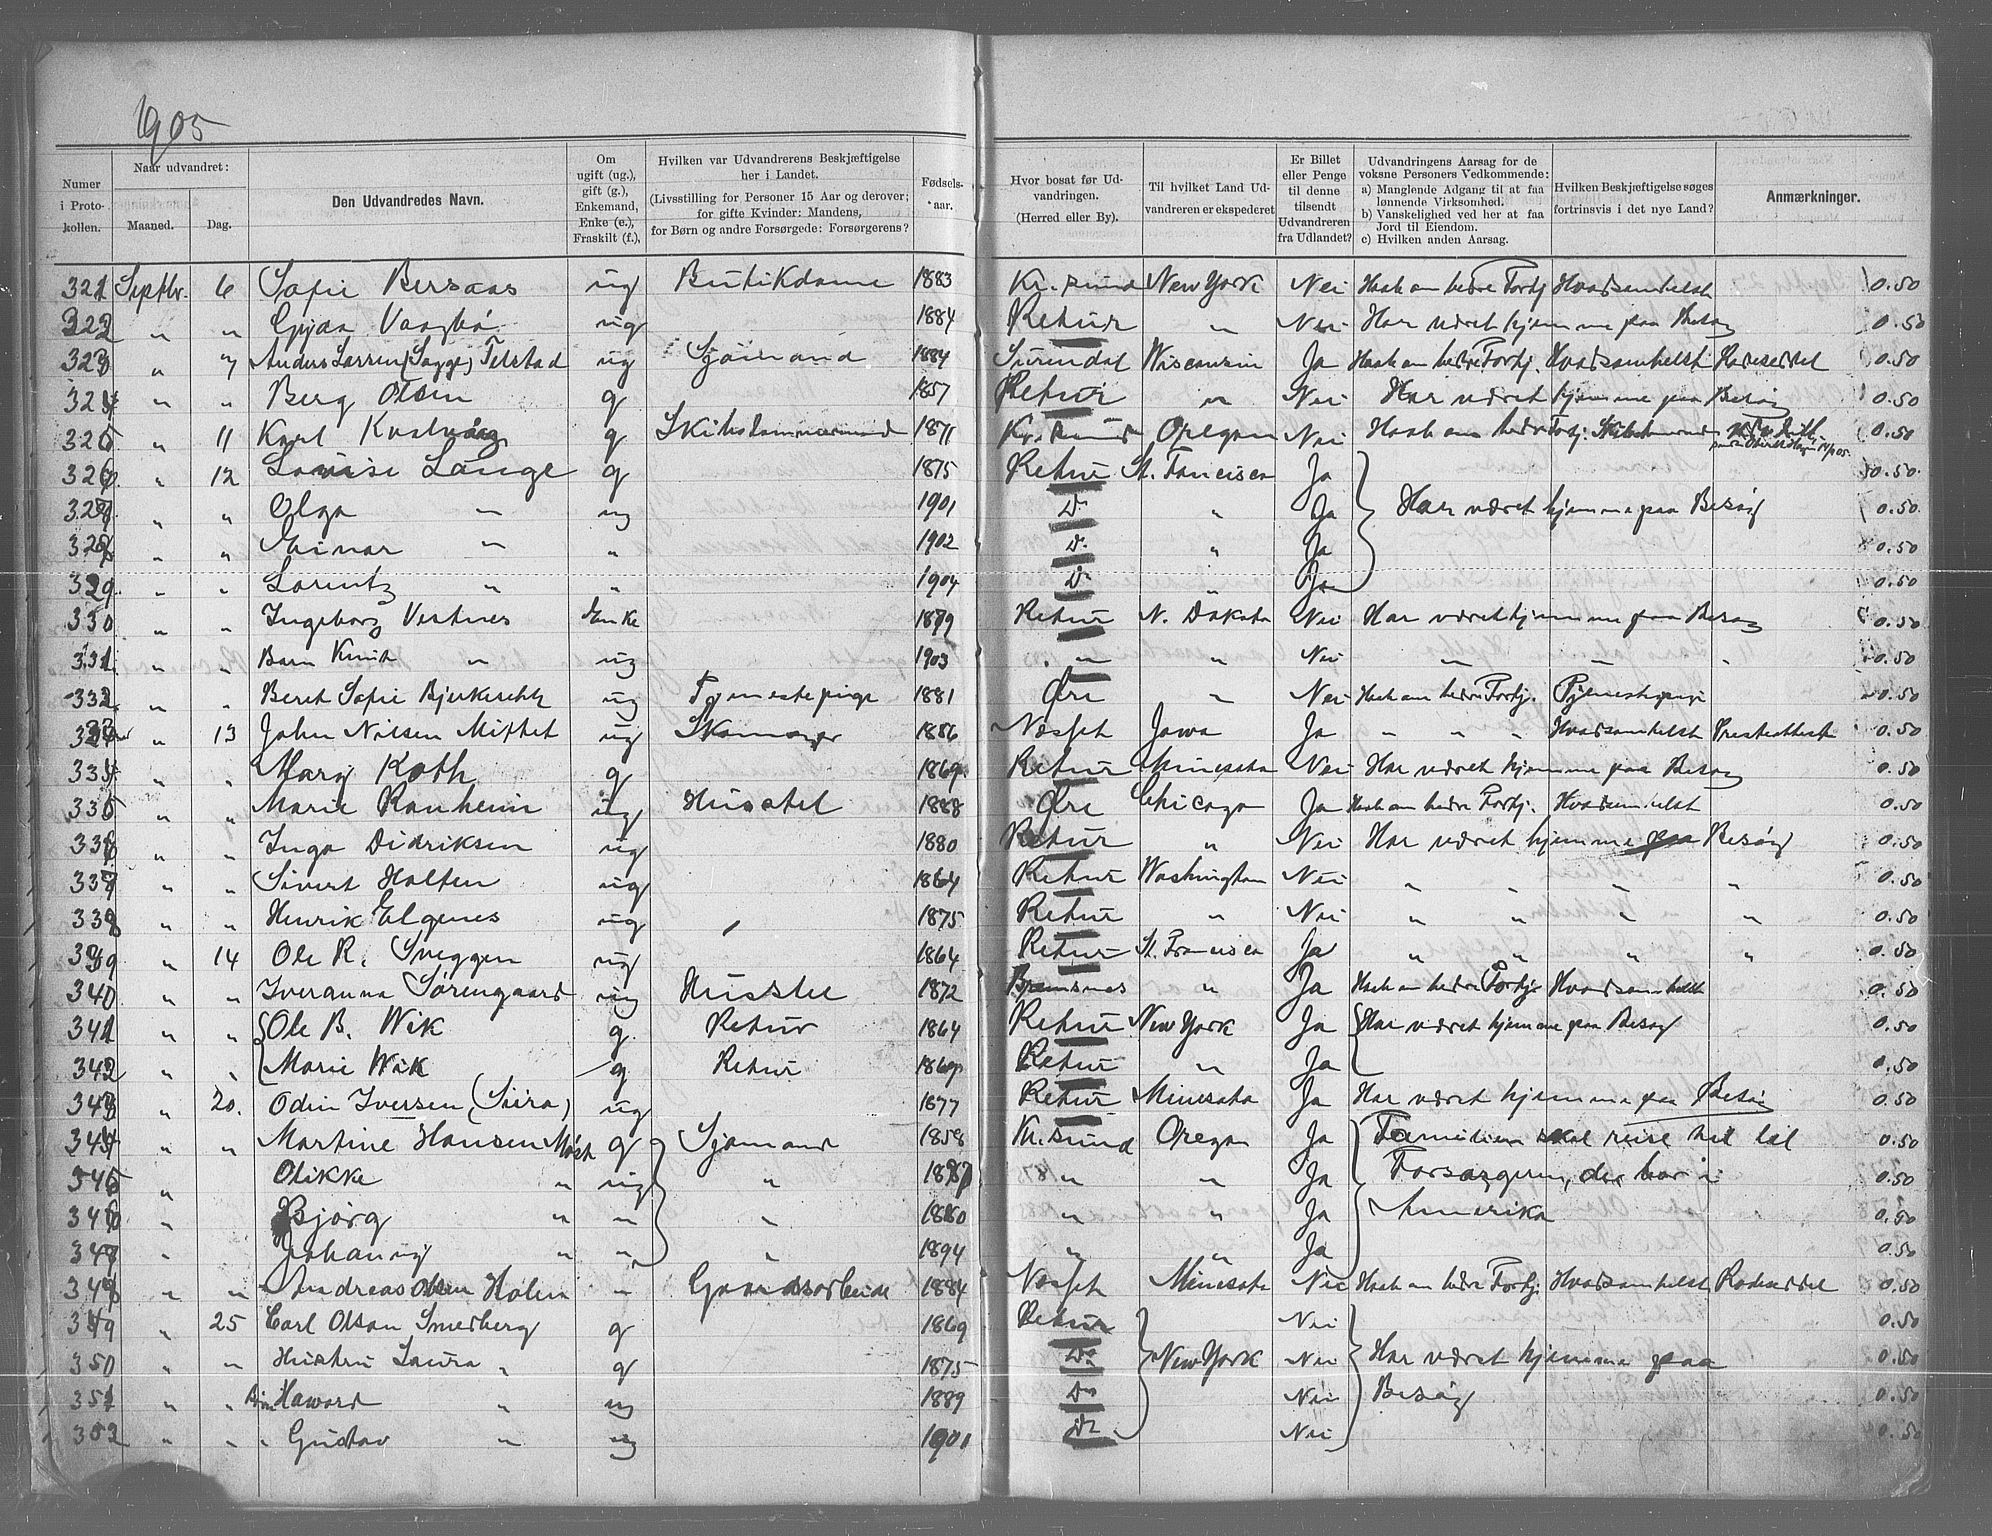 1905
Numer i Protokollen. | Naar udvandret: Maaned. | Dag. | Den Udvandredes Navn. | Om ugift (ug.), gift (g.), Enkemand, Enke (e.), Fraskilt (f.), | Hvilken var Udvandrerens Beskjæftigelse her i Landet. (Livsstilling for Personer 15 Aar og derover; for gifte Kvinder: Mandens, for Børn og andre Forsørgede: Forsørgerens? | Fødselsaar. | Hvor bosat før Udvandringen. (Herred eller By). | Til hvilket Land Udvandreren er ekspederet | Er Billet eller Penge til denne tilsendt Udvandreren fra Udlandet? | Udvandringens Aarsag for de voksne Personers Vedkommende: a) Manglende Adgang til at faa lønnende Virksomhed. b) Vanskelighed ved her at faa Jord til Eiendom. c) Hvilken anden Aarsag. | Hvilken Beskjæftigelse søges fortrinsvis i det nye Land? | Anmærkninger.
321 Septbr. 6 Sofie Bersaas ug Butikdame 1883 Kr. sund New York Nei Haab om bedre Fortj Hvadsomhelst 0.50
322 " " Gyda Vaagbø ug 1884 Retur " Nei Har været hjemme paa Besøg 0.50
323 " 7 Anders Larsen (Sagge) Telstad ug Sjømand 1884 Surendal Wisconsin Ja Haab om bedre Fortj. Hvadsomhelst Rodeseddel 0.50
324 " " Berg Olsen g 1857 Retur " Nei Har været hjemme paa Besøg 0.50
325 " 11 Karl g Skibstømmermand 1871 Kr. sund Oregon Nei Haab om bedre Fortj. 0.50
326 " 12 Louise Lange g 1875 Retur St. Fancisco Ja 0.50
327 " " Olga " ug 1901 Do " Ja Har været hjemme paa Besøg 0.50
328 " " Einar " " 1902 Do " Ja 0.50
329 " " Lorentz " " 1904 Do " Ja 0.50
330 " " Ingeborg Vestnes Enke 1879 Retur N. Dakota Nei Har været hjemme paa Besøg 0.50
331 " " Barn Knut " ug 1903 " " Nei " " " 0.50
332 " " Beret Sofie ug Tjenestepige 1881 Øre " Nei Haab om bedre Fortj. Tjenestepige 0.50
333 " 13 John Nilsen Mittet ug Skomager 1886 Næsset Jowa Ja " " " Hvadsomhelst Presteattest 0.50
334 " " Mary Roth g 1869 Retur Minesota Nei Har været hjemme paa Besøg 0.50
335 " " Marie Ranheim ug Husstel 1888 Øre Chicago Ja Haab om bedre Fortj. Hvadsomhelst 0.50
336 " " Inga Didriksen ug 1880 Retur " Nei Har været hjemme paa Besøg 0.50
337 " " Sivert Holten ug 1864 Retur Washington Nei " " " 0.50
338 " " Henrik Elgenes ug " 1875 Retur " Nei " " " " 0.50
339 " 14 Ole R. Sneggen ug 1864 Retur St. Francisco Ja " " " " 0.50
340 " " Iveranna Sørengaard ug Husstel 1872 Bremsnes " Ja Haab om bedre Fortj. Hvadsomhelst 0.50
341 " " Ole B. Wik g. Retur 1864 Retur New York Ja Har været hjemme paa Besøg 0.50
342 " " Marie Wik g Retur 1869 Retur " Ja 0.50
343 " 20. Odin Iversen (Sira) ug 1877 Retur Minesota Ja Har været hjemme paa Besøg 0.50
344 " " Martine Hansen g Sjømand 1858 Kr. sund Oregon Ja Familien skal reise hel til 0.50
345 " Olikke " ug " " " Ja Forsørgeren, der bor i 0.50
346 " Bjørg " " " " " Ja Amerika 0.50
347 " " " " 1894 " " Ja 0.50
348 " " Andreas Olsen Holen " Gaardsarbeide 1884 Næsset Minesota Nei Haab om bedre Fortj. Hvadsomhelst Rodeseddel 0.50
349 " 25 Carl Olson Smedberg g 1869 Retur Nei 0.50
350 " " Hustru Laura " g 1875 Do New York Nei Har været hjemme paa 0.50
351 " " Haward " ug 1889 Do Nei Besøg 0.50
352 " " " Gustav " ug 1901 Do Nei 0.50